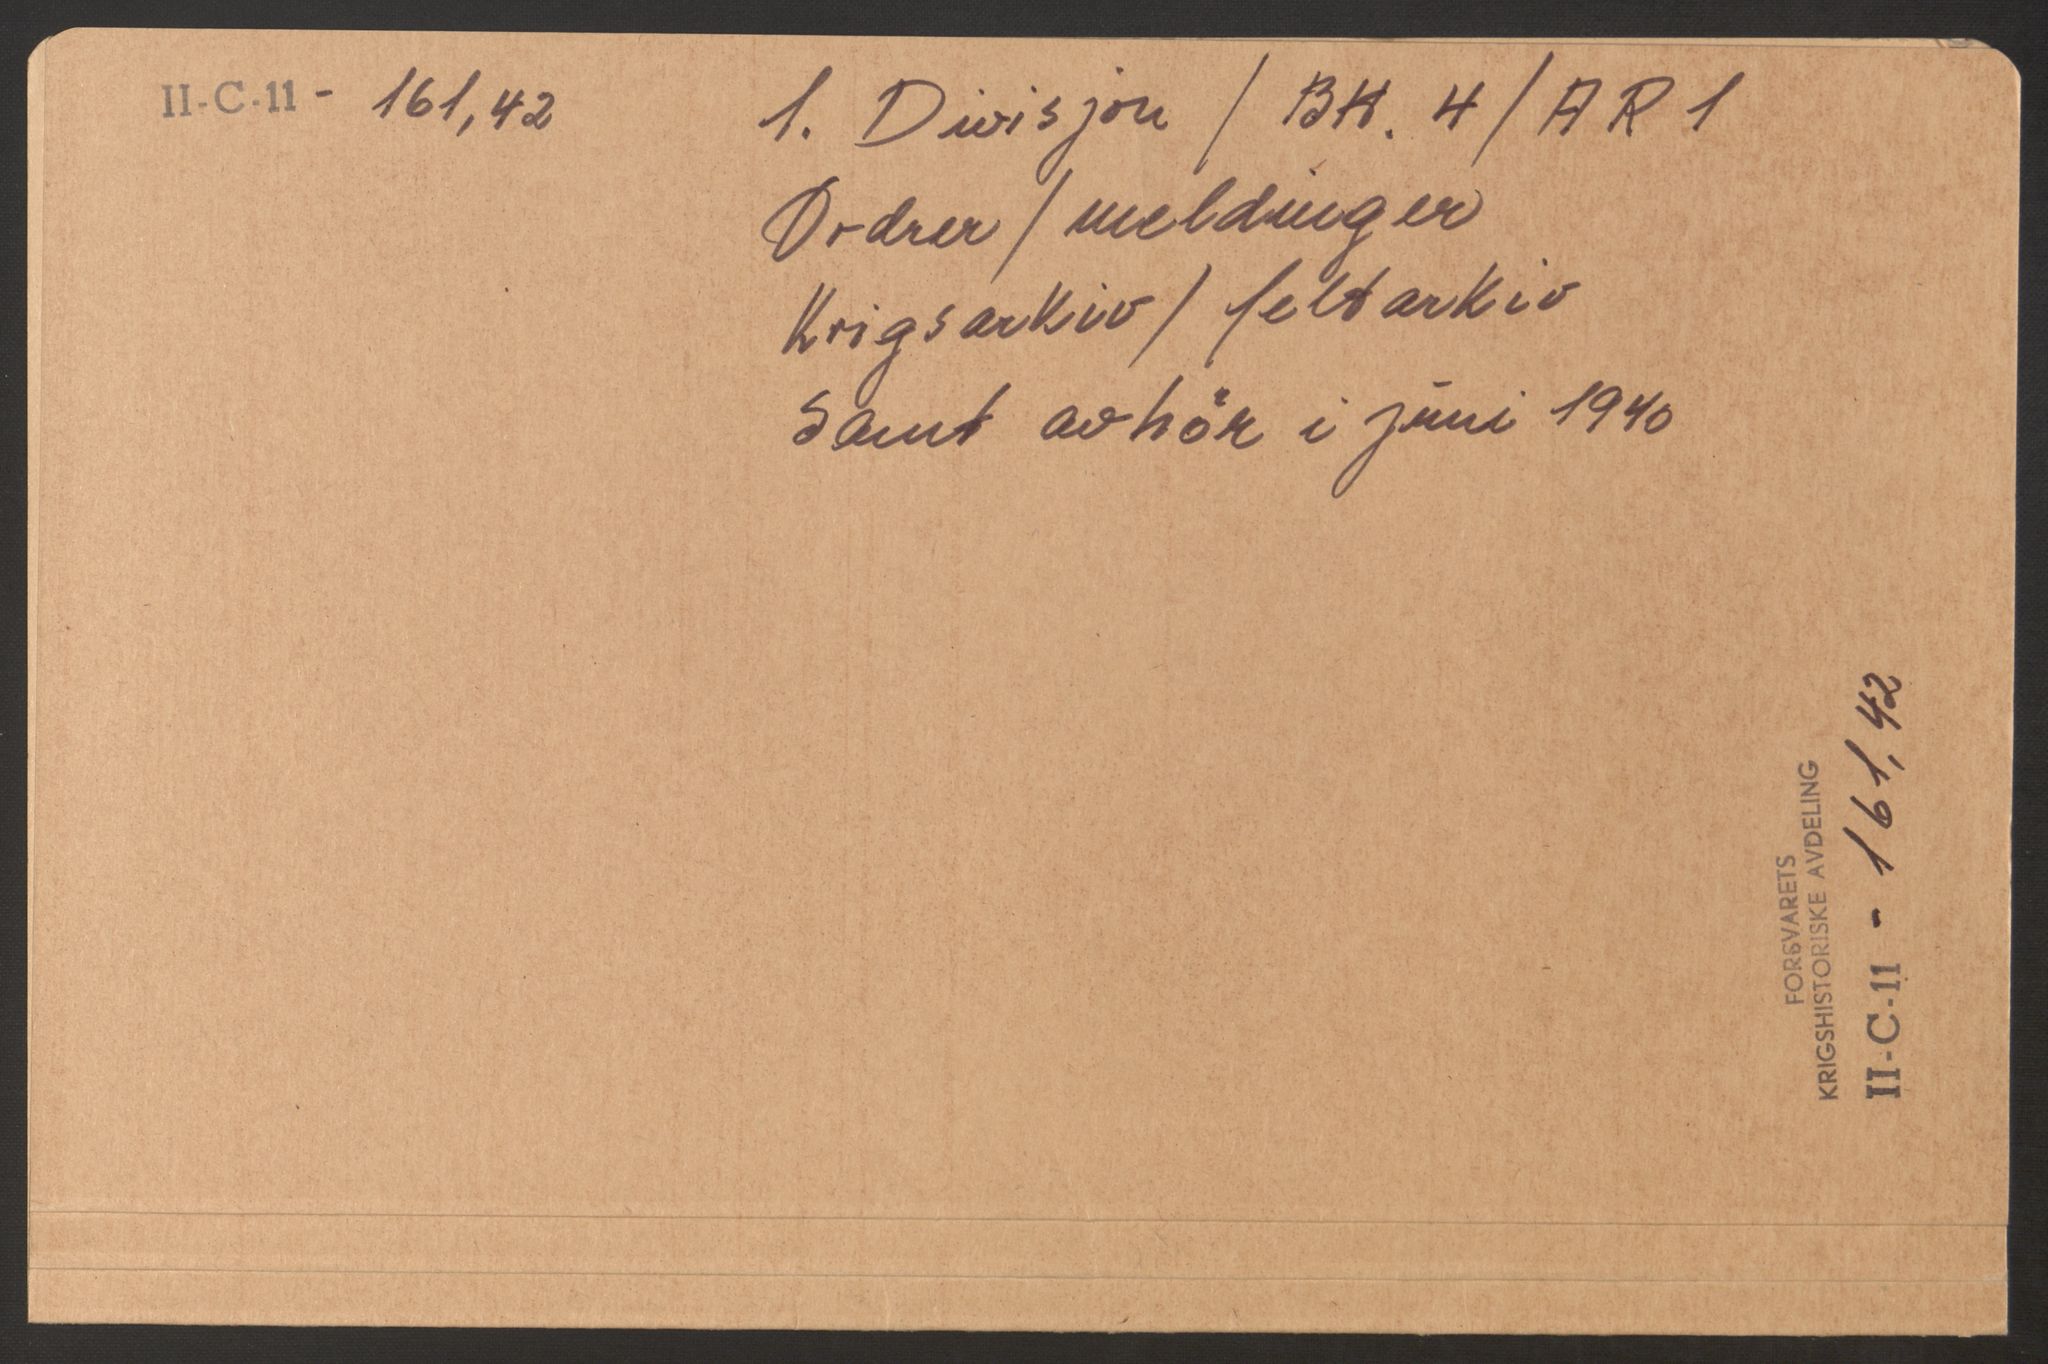 II-C-11 - 161,42
1. Divisjon / Btt. 4 / AR 1
Ordrer / meldinger
Krigsarkiv / feltarkiv
Samt avhör i juni 1940
FORSVARETS
KRIGSHISTORISKE AVDELING
II-C-11 - 161,42